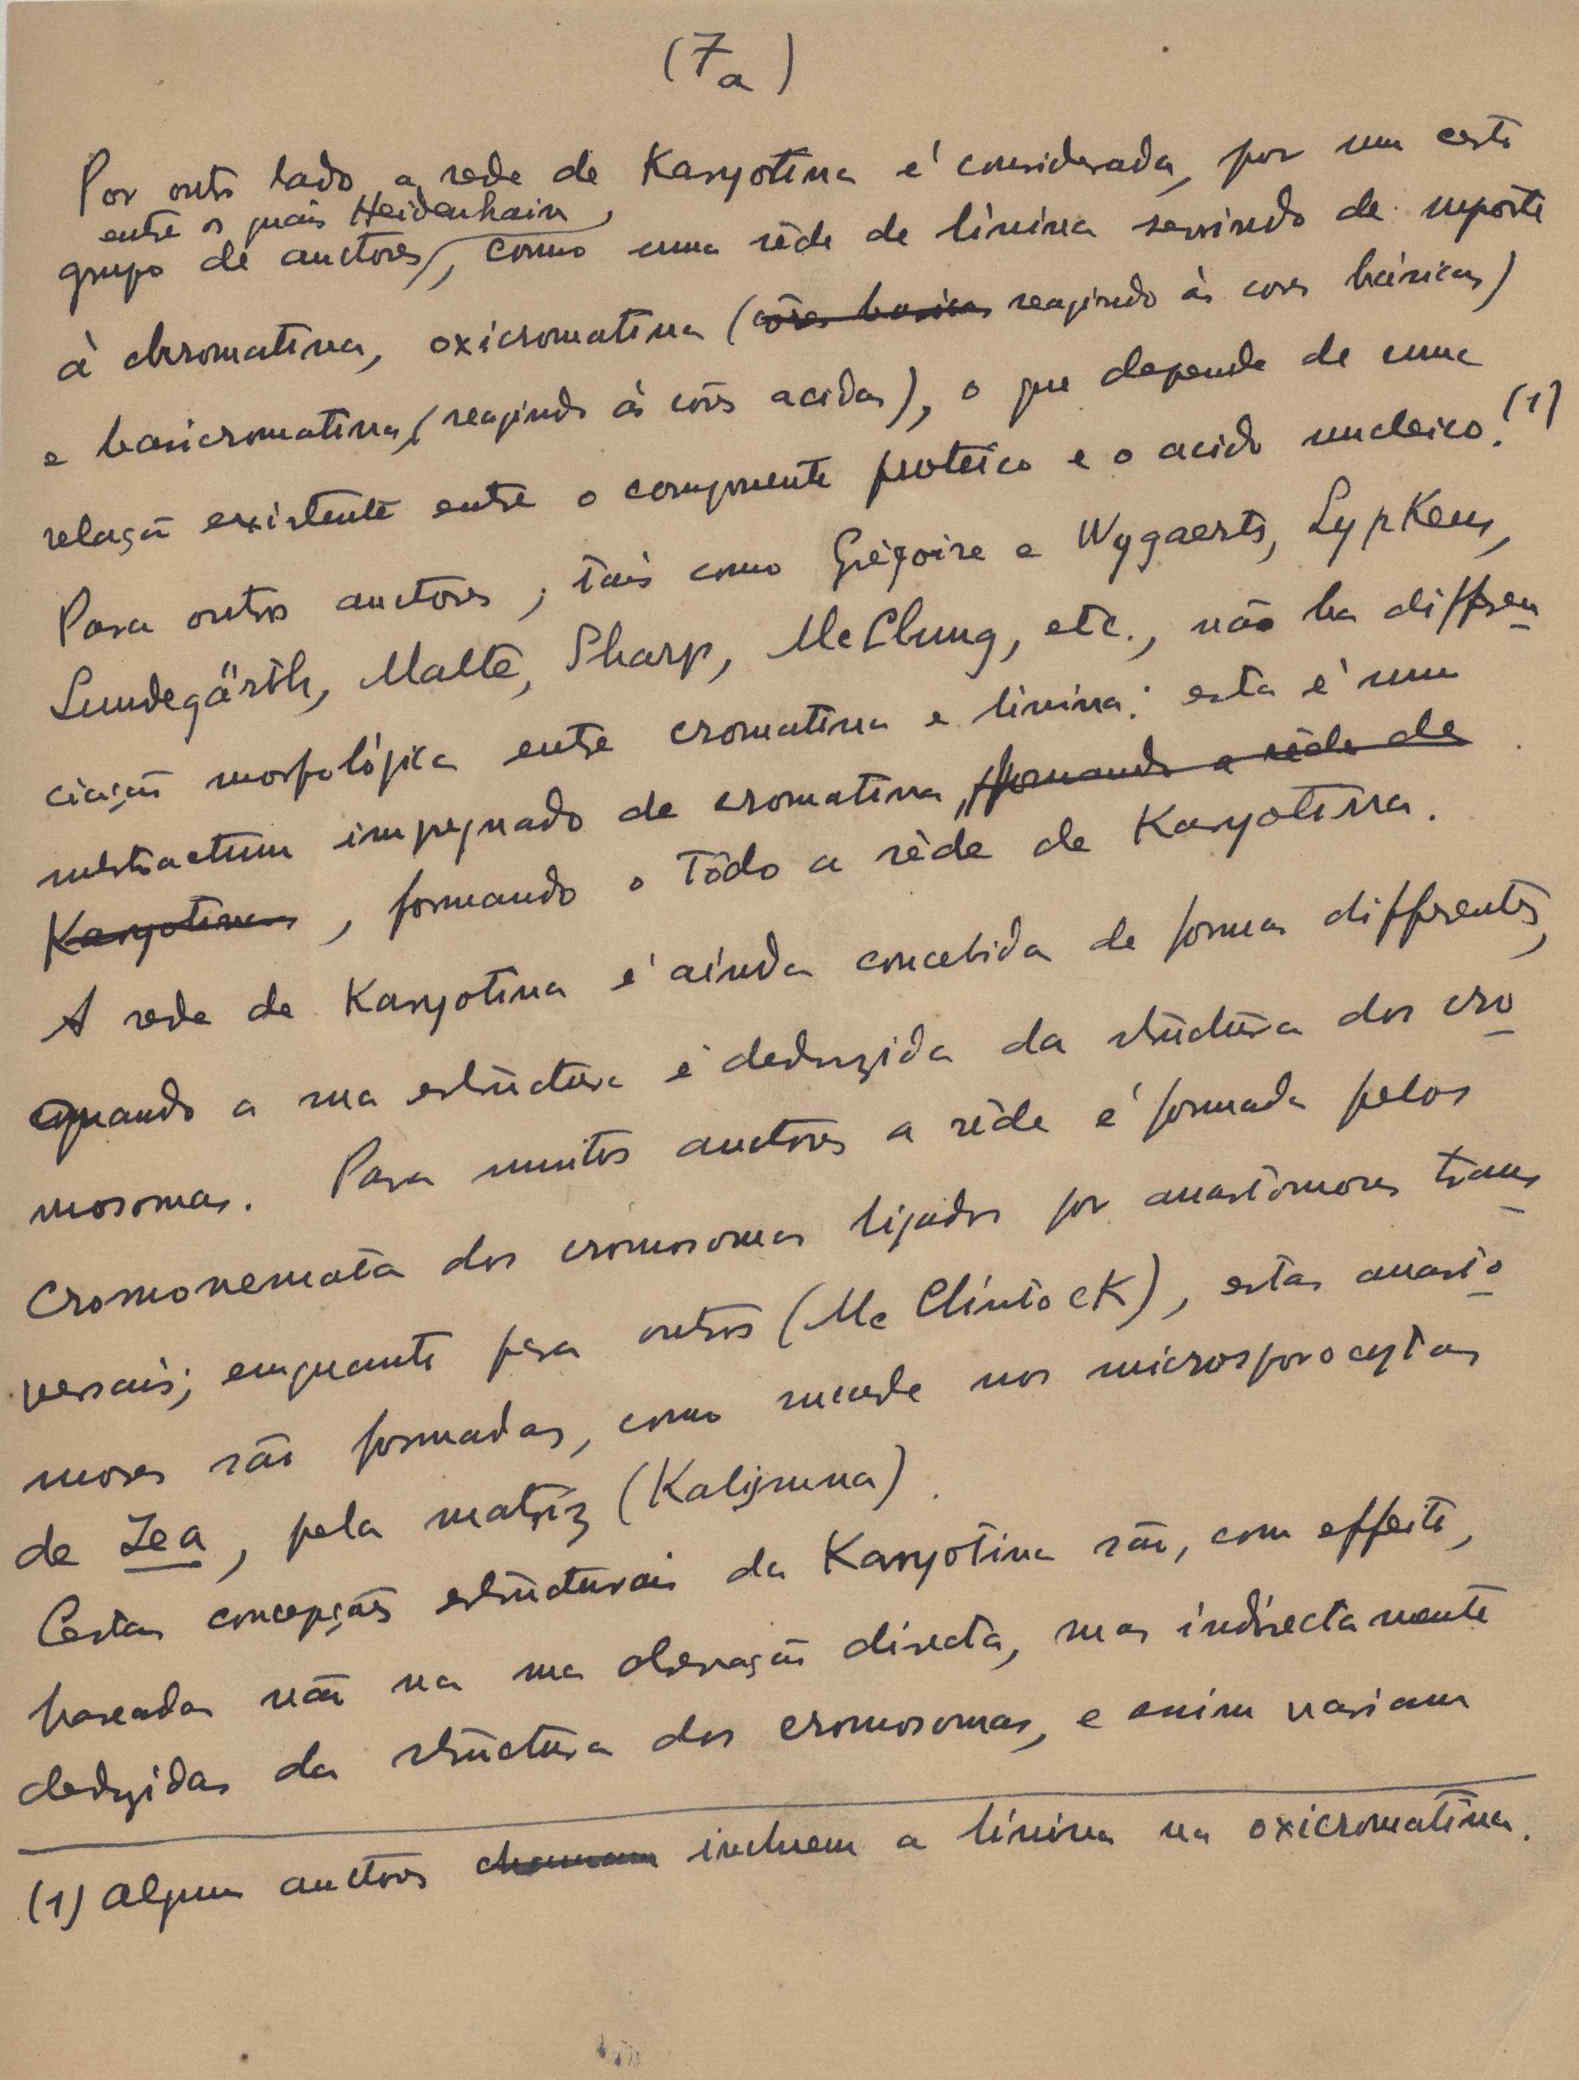 (7a)
Por outro lado, a rede de Karyotina é considerada, por um certo
entre os quais Heidenhain,
grupo de auctores, como uma rêde de linina servindo de suporte
à chromatina, oxicromatina (côres basicas reagindo às cores básicas)
e basicromatina (reagindo às côres acidas), o que depende de uma
relação existente entre o componente proteico e o acido nucleico.(1)
Para outros auctores, tais como Grégoire e Wygaerts, Lypkens,
Lundegärth, Malte, Sharp, McClung, etc., não ha differen
ciação morfológica entre cromatina e linina: esta é um
substractum impregnado de cromatina, formando a rêde de
Karyotina, formando o todo a rêde de Karyotina.
A rede de Karyotina é ainda concebida de formas differentes,
quando a sua estructura é deduzida da structura dos cro
mosomas. Para muitos auctores a rêde é formada pelos
cromonemata dos cromosomas ligados por anastomoses trans
versais; emquanto para outros (Mc Clintock), estas anasto
moses são formadas, como sucede nos microsporocytas
de Zea, pela matriz (Kalymma).
Certas concepções estructurais da Karyotina são, com effeito,
baseadas não na sua observação directa, mas indirectamente
deduzidas da structura dos cromosomas, e assim variam
(1) Alguns auctores chamam incluem a linina na oxicromatina.